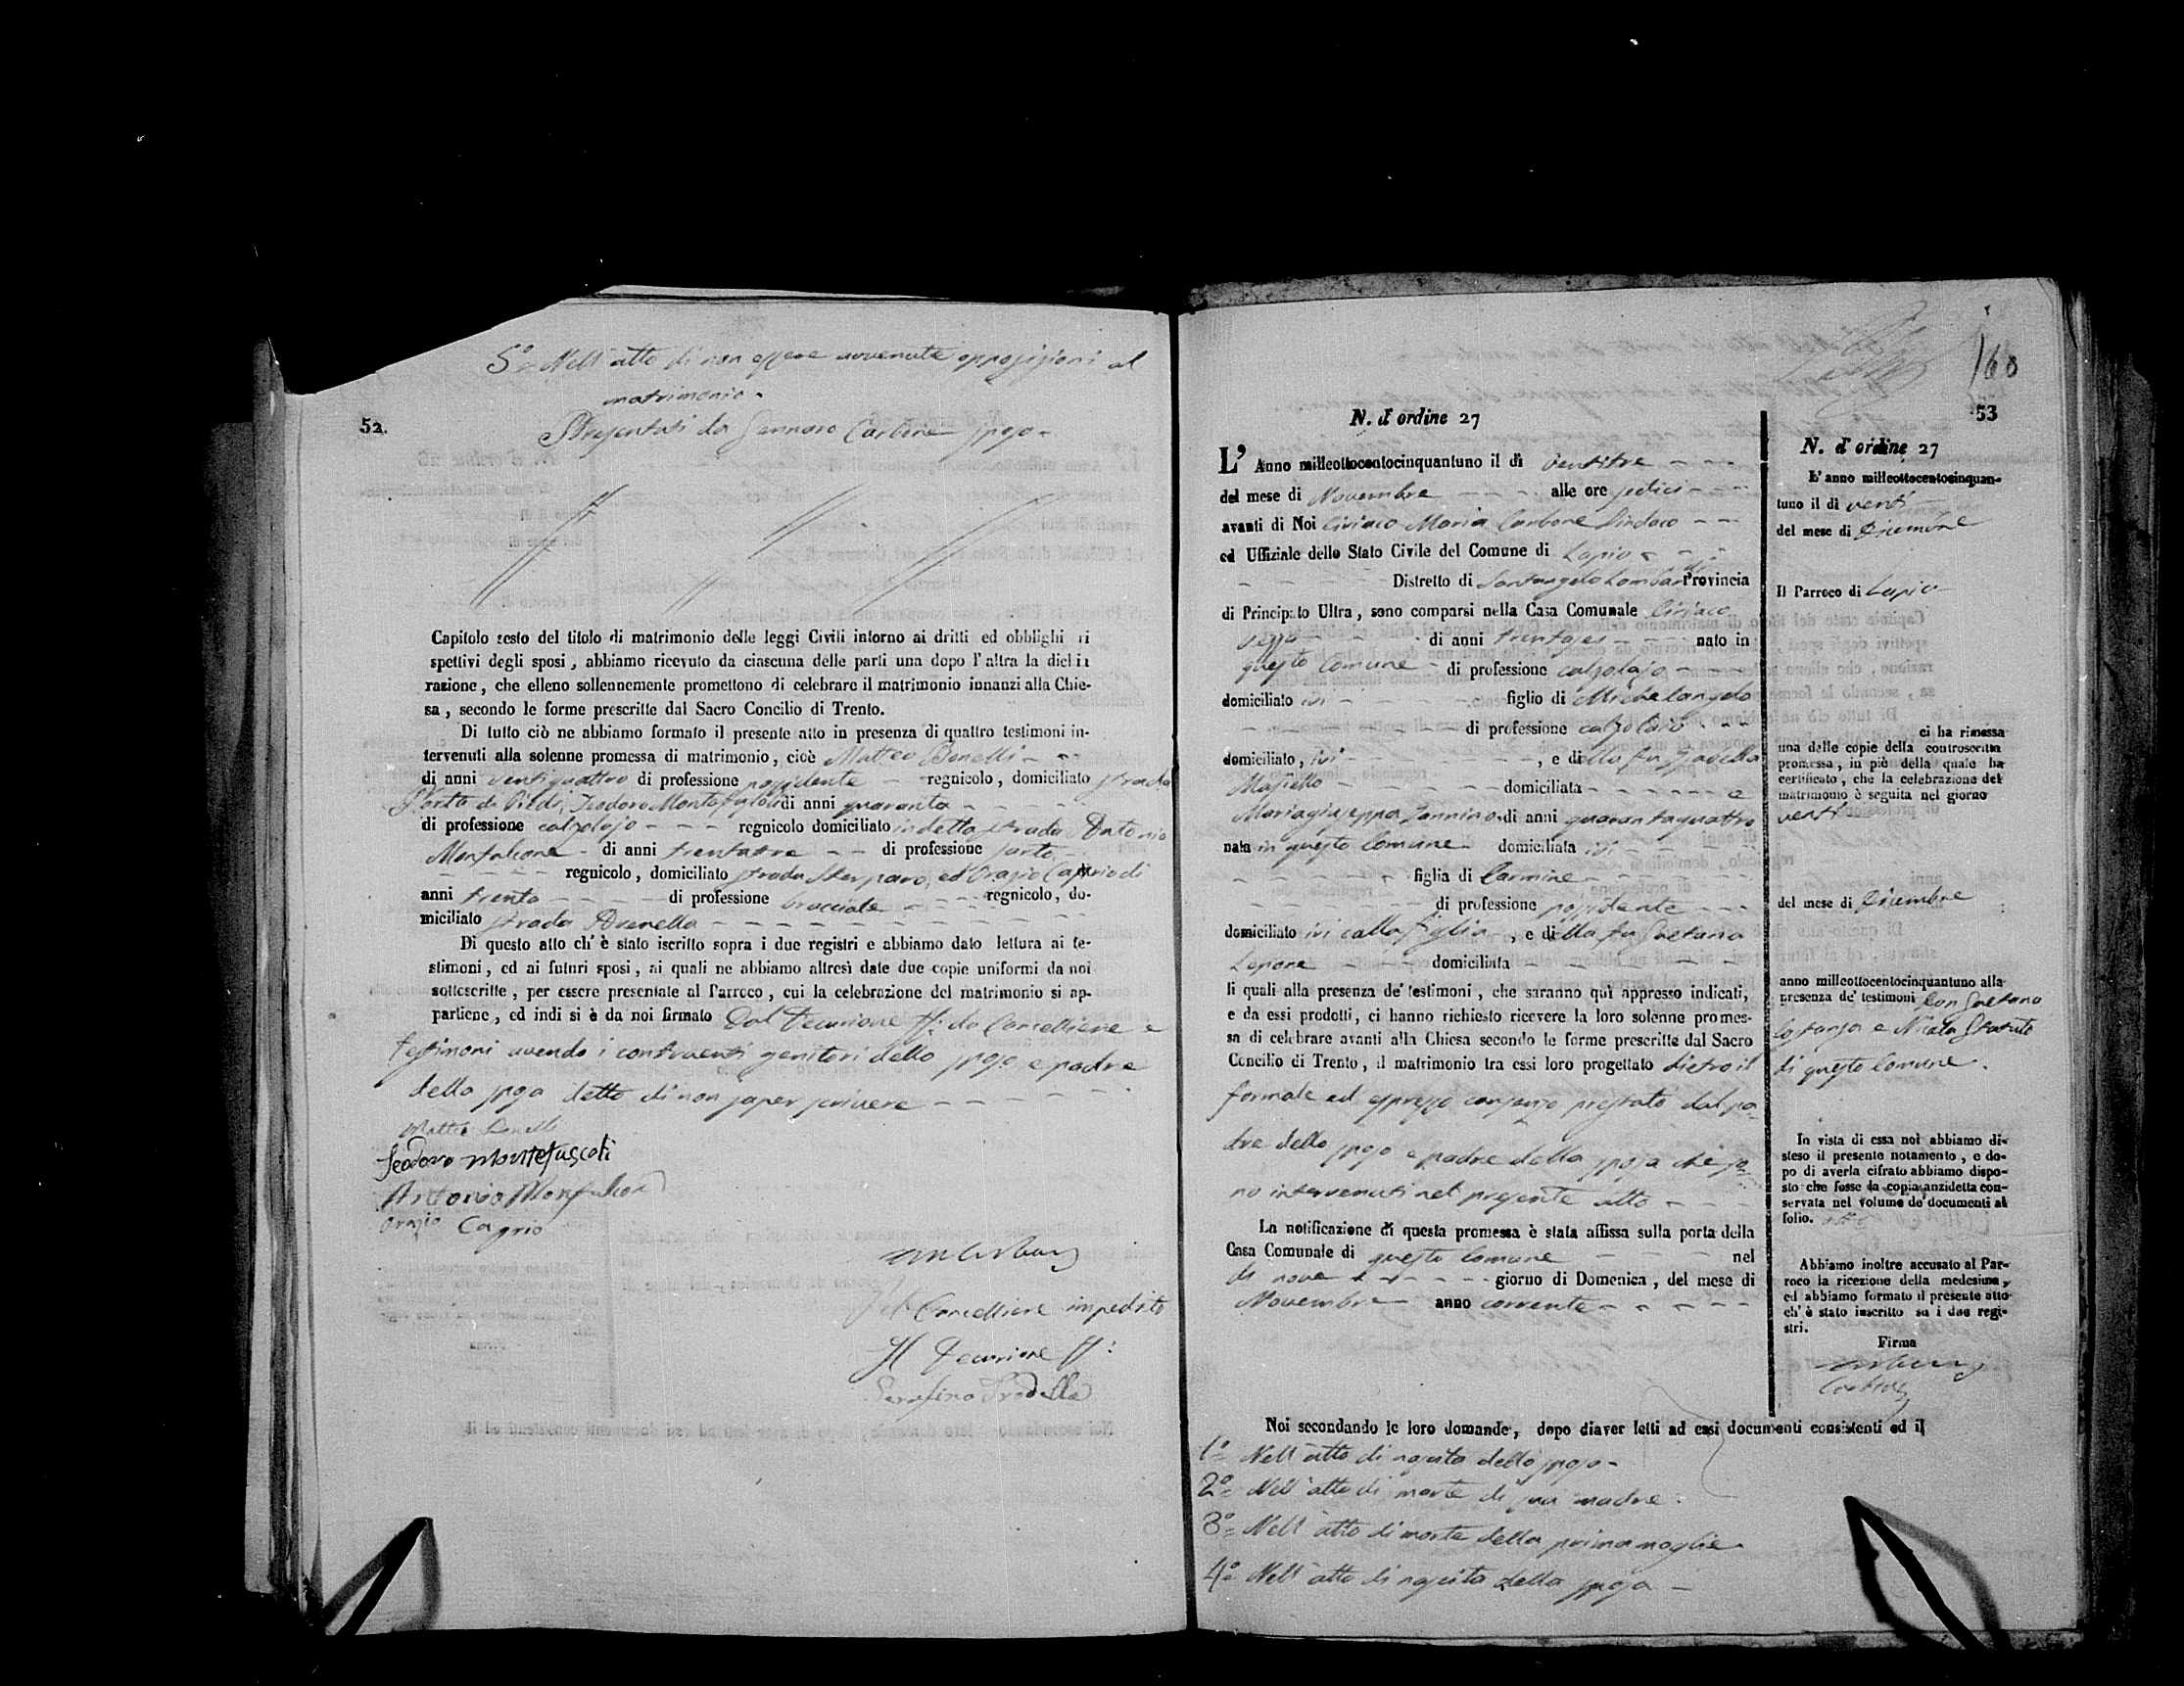 5° Nell'atto di non essere avvenute opposizioni al
matrimonio.
52.
Presentati da Gennaro Carbone sposo
Capitolo sesto del titolo di matrimonio delle leggi Civili intorno ai dritti ed obblighi ri
spettivi degli sposi, abbiamo ricevuto da ciascuna delle parti una dopo l'altra la dichia
razione, che elleno sollennemente promettono di celebrare il matrimonio innanzi alla Chie-
sa, secondo le forme prescritte dal Sacro Concilio di Trento.
Di tutto ciò ne abbiamo formato il presente atto in presenza di quattro testimoni in-
tervenuti alla solenne promessa di matrimonio, cioè Matteo Bonelli
di anni ventiquattro di professione possidente regnicolo, domiciliato strada
Porta di Piedi, Teodoro Montefuscoli di anni quaranta
di professione calzolajo regnicolo domiciliato in detta strada Antonio
Monfalcone di anni trentatre di professione sarto
regnicolo, domiciliato strada ed Orazio Caprio di
anni trenta di professione bracciale regnicolo, do-
miciliato strada
Di questo atto ch' è stato iscritto sopra i due registri e abbiamo dato lettura ai te-
stimoni, ed ai futuri sposi, ai quali ne abbiamo altresì date due copie uniformi da noi
sottoscritte, per essere presentate al Parroco, cui la celebrazione del matrimonio si ap-
partiene, ed indi si è da noi firmato Dal Decurione ff. da Cancelliere e
testimoni avendo i contraenti genitori dello sposo e padre
della sposa detto di non saper scrivere
Matteo Bonelli
Teodoro Montefuscoli
Antonio Monfalcon
Orazio Caprio
Il Cancelliere impedito
Il Decurione ff:
Serafino
160
53
N. d'ordine 27
L' Anno milleottocentocinquantuno il dì ventitre
del mese di Novembre alle ore sedici
avanti di Noi Ciriaco Maria Carbone Sindaco
ed Uffiziale dello Stato Civile del Comune di Lapio
Distretto di Santangelo Lombardi Provincia
di Principato Ultra, sono comparsi nella Casa Comunale Ciriaco
di anni trentasei nato in
questo Comune di professione calzolajo
domiciliato ivi figlio di Michelangelo
di professione calzolaro
domiciliato, ivi, e di della fu Isabella
Masiello domiciliata e
Mariagiuseppa Iannino di anni quarantaquattro
nata in questo Comune domiciliata ivi
figlia di Carmine
di professione possidente
domiciliato ivi colla figlia, e di della fu Gaetana
Lepore domiciliata
li quali alla presenza de' testimoni, che saranno quì appresso indicati,
e da essi prodotti, ci hanno richiesto ricevere la loro solenne promes-
sa di celebrare avanti alla Chiesa secondo le forme prescritte dal Sacro
Concilio di Trento, il matrimonio tra essi loro progettato dietro il
formale ed espresso consenso prestato dal pa-
dre dello sposo e padre della sposa che so-
no intervenuti nel presente atto
La notificazione di questa promessa è stata affissa sulla porta della
Casa Comunale di questo Comune nel
dì nove giorno di Domenica, del mese di
Novembre anno corrente
N. d'ordine 27
L'anno milleottocentocinquan-
tuno il dì venti
del mese di Dicembre
Il Parroco di Lapio
ci ha rimessa
una delle copie della controscritta
promessa, in piè della quale ha
certificato, che la celebrazione del
matrimonio è seguita nel giorno
venti
del mese di Dicembre
anno milleottocentocinquantuno alla
presenza de' testimoni Don Gaetano
Costanza e Nicola Statuto
di questo Comune.
In vista di essa noi abbiamo di-
steso il presente notamento, e do-
po di averla cifrato abbiamo dispo-
sto che fosse la copia anzidetta con-
servata nel volume de' documenti al
folio.
Abbiamo inoltre accusato al Par-
roco la ricezione della medesima,
ed abbiamo formato il presente atto
ch' è stato inscritto su i due regi-
stri.
Firma
Noi secondando le loro domande, dopo di aver letti ad essi documenti consistenti ed il
1° Nell'atto di nascita dello sposo
2° Nell'atto di morte di sua madre
3° Nell'atto di morte della prima moglie
4° Nell'atto di nascita della sposa